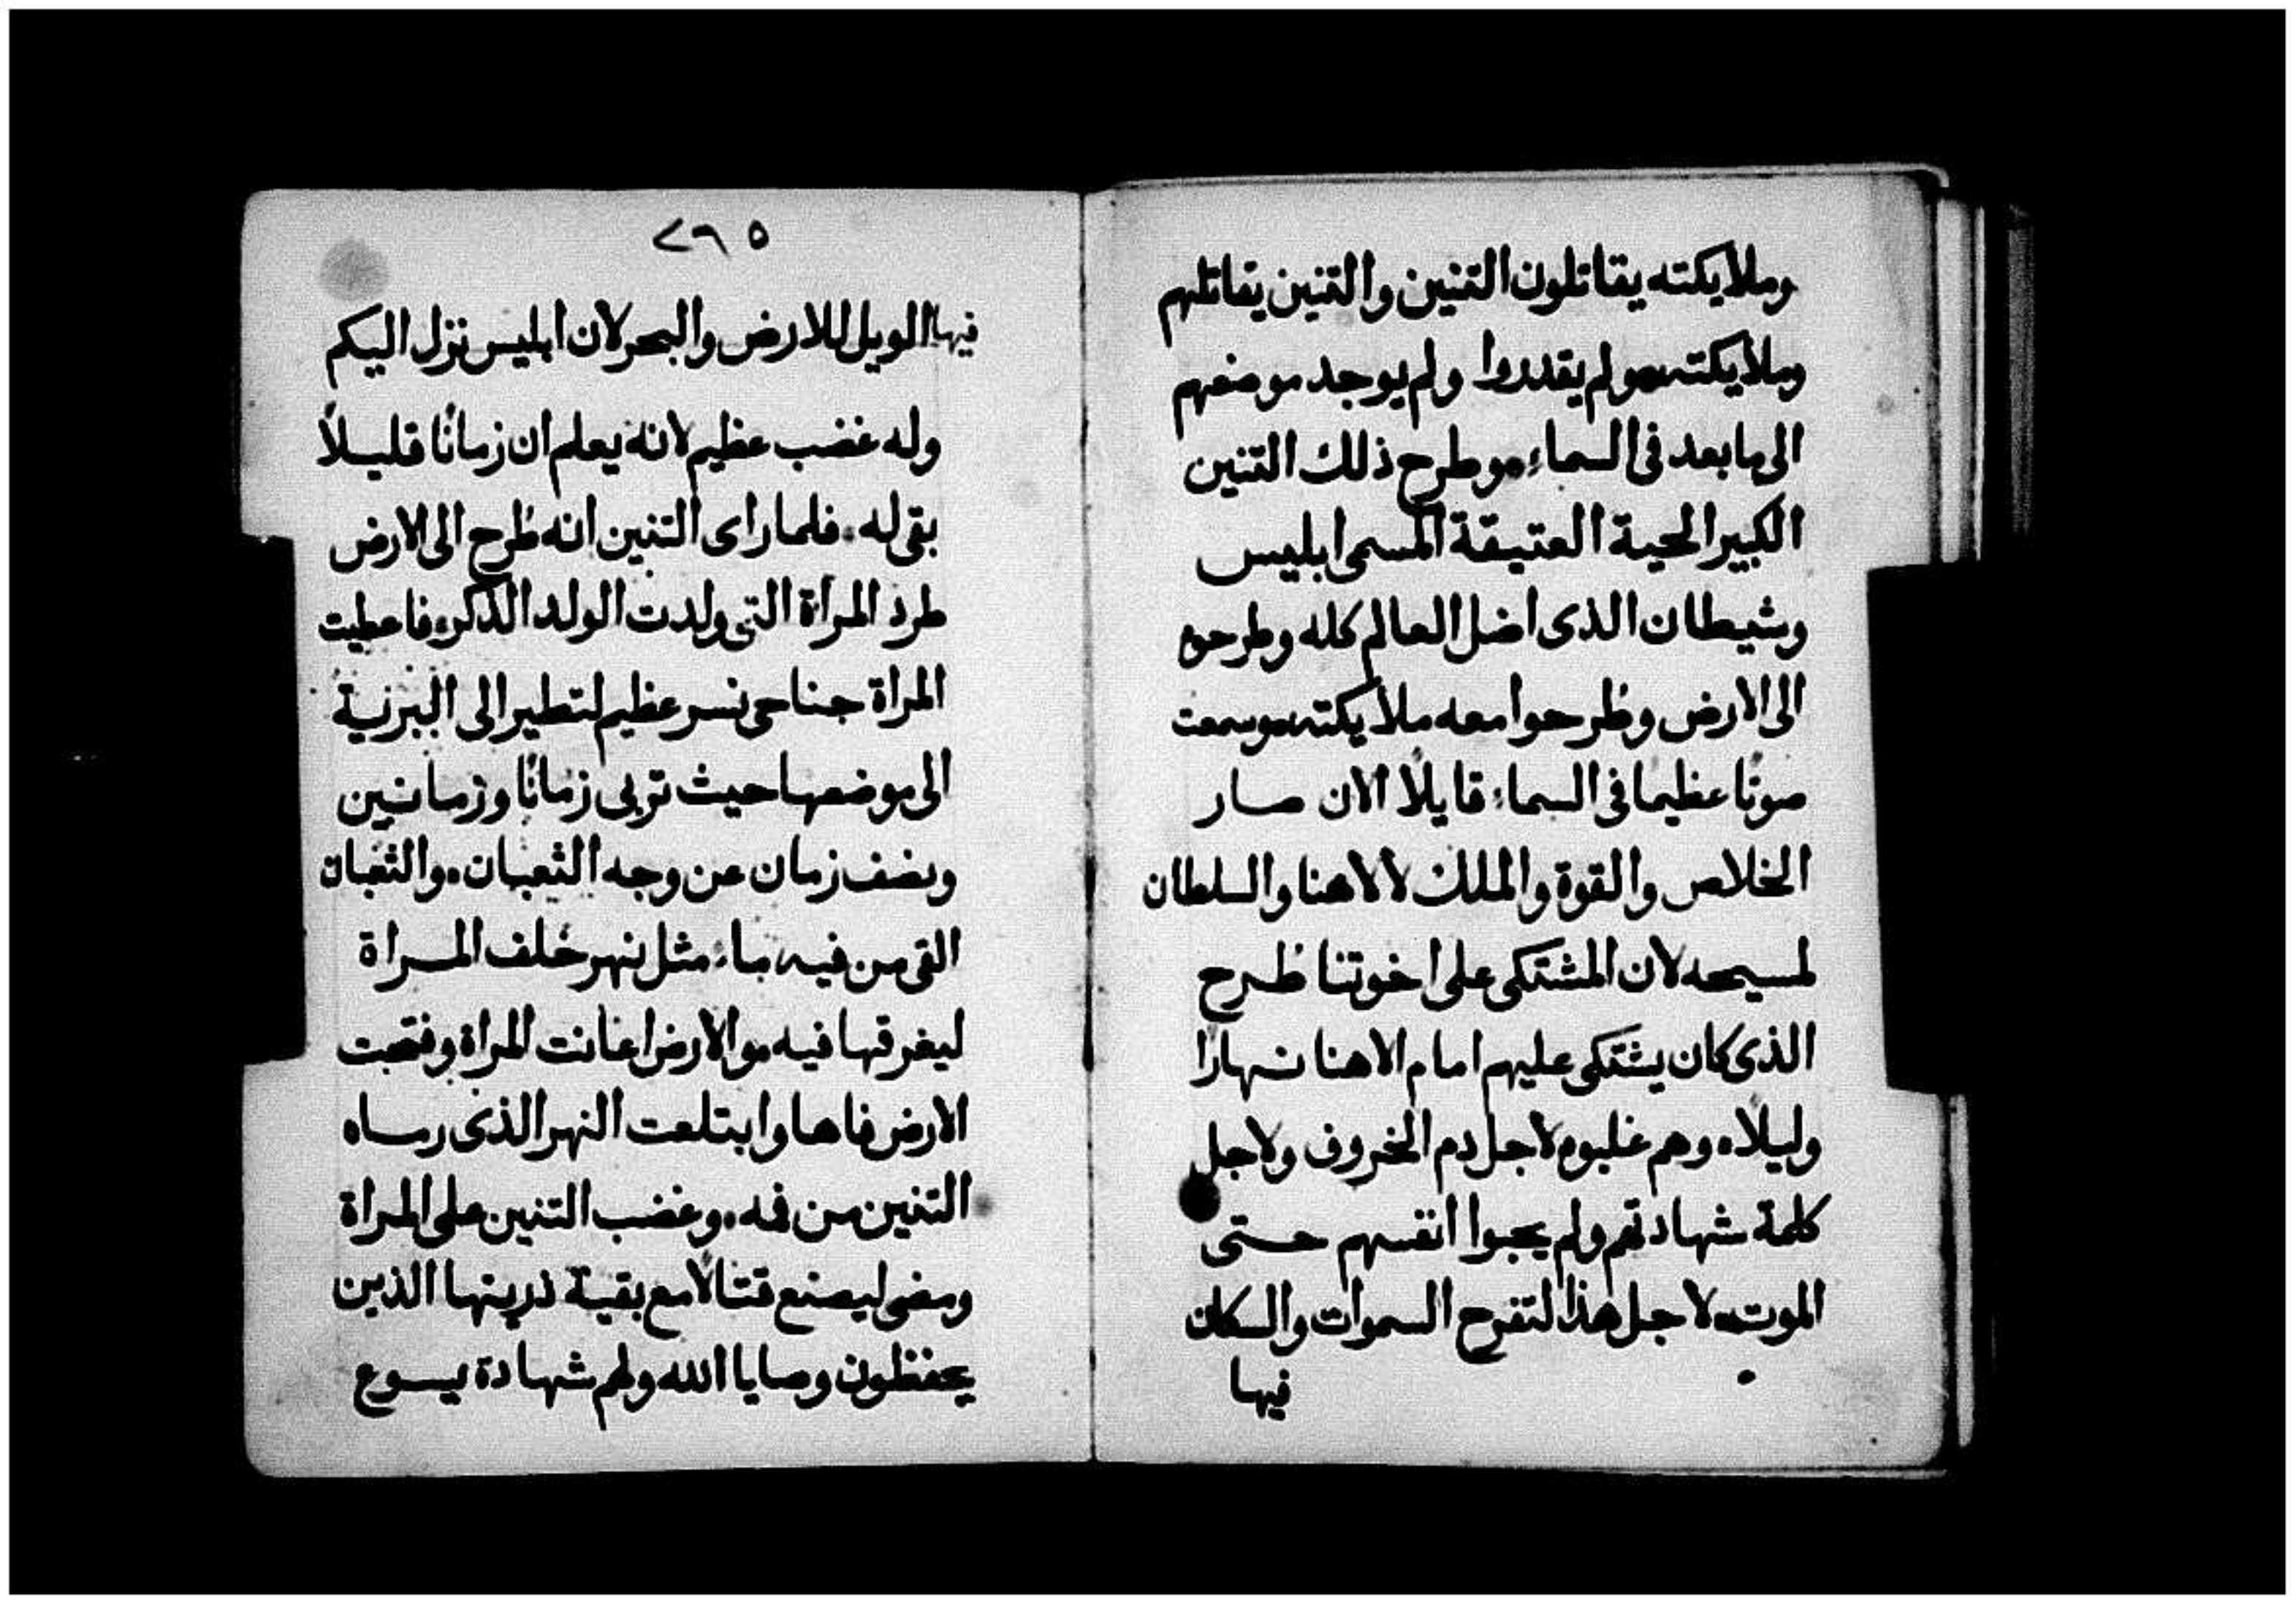 وملايكته يقاتلون التنين والتنين يقاتلهم
وملايكته ولم يقدروا ولم يوجد موضعهم
الى ما بعد فى السماء وطرح ذلك التنين
الكبير الحية العتيقة المسمى ابليس
وشيطان الذى اضل العالم كله وطرحوه
الى الارض وطرحوا معه ملايكته وسمعت
صوتًا عظيما فى السماء قايلًا الان صار
الخلاص والقوة والملك لالاهنا والسلطان
لمسيحه لان المشتكى على اخوتنا طرح
الذى كان يشتكى عليهم امام الاهنا نهارًا
وليلًا. وهم غلبوه لاجل دم الخروف ولاجل
كلمة شهادتهم ولم يحبوا انفسهم حتى
الموت. لاجل هذا لتفرح السموات والسكان
فيها
٢٦٥
فيها الويل للارض والبحر لان ابليس نزل اليكم
وله غضب عظيم لانه يعلم ان زمانًا قليلًا
بقى له. فلما راى التنين انه طُرح الى الارض
طرد المراة التى ولدت الولد الذكر. فاعطيت
المراة جناحى نسر عظيم لتطير الى البرية
الى موضعها حيث تربى زمانًا وزمانين
ونصف زمان عن وجه الثعبان. والثعبان
القى من فيه ماء مثل نهر خلف المراة
ليغرقها فيه. والارض اعانت المراة وفتحت
الارض فاها وابتلعت النهر الذى رماه
التنين من فمه. وغضب التنين على المراة
ومضى ليصنع قتالًا مع بقية ذريتها الذين
يحفظون وصايا الله ولهم شهادة يسوع